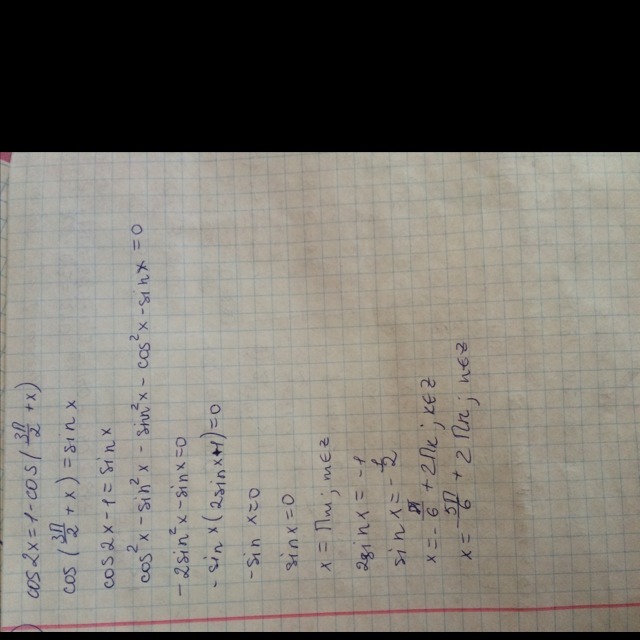 cos2x=1-cos(3π/2+x)
cos(3π/2+x)=sinx
cos2x-1=sinx
cos²x-sin²x-sin²x-cos²x-sinx=0
-2sin²x-sinx=0
-sinx(2sinx+1)=0
-sinx=0
sinx=0
x=πm; m∈z
2sinx=-1
sinx=-1/2
x=-π/6+2πk; k∈z
x=-5π/6+2πn; n∈z